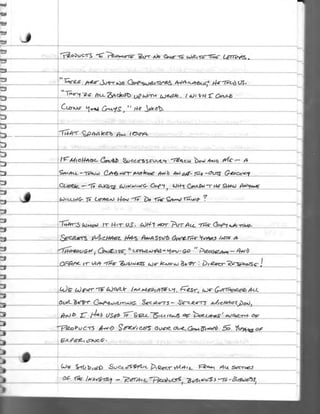 PRODUCTS TO PROMOTE BUT NO ONE TO WRITE THE LETTERS.
"THERE ARE JUST NO COPYWRITERS AVAILABLE," HE TOLD US.
"THEY'RE ALL BACKED UP WITH WORK. I WISH I COULD
CLONE YOU GUYS," HE JOKED.
THAT SPARKED AN IDEA.
IF MICHAEL COULD SUCCESSFULLY TEACH DON AND ME — A
SMALL-TOWN CABINET MAKER AND AN GROCERY
CLERK — TO WRITE WINNING COPY, WHY COULDN'T HE SHOW ANYONE
WILLING TO LEARN HOW TO DO THE SAME THING?
THAT'S WHEN IT HIT US. WHY NOT PUT ALL THE COPYWRITING
SECRETS MICHAEL HAS AMASSED OVER THE YEARS INTO A
THOROUGH, CONCISE, "LEARN-AS-YOU-GO" PROGRAM — AND
OFFER IT VIA THE BUSINESS WE KNOW BEST: DIRECT RESPONSE!
WE WENT TO WORK IMMEDIATELY. FIRST, WE GATHERED ALL
OUR BEST COPYWRITING SECRETS — SECRETS MICHAEL, DON,
AND I HAD USED TO SELL BILLIONS OF DOLLARS' WORTH OF
PRODUCTS AND SERVICES OVER OUR COMBINED 50 YEARS OF
EXPERIENCE.
WE STUDIED SUCCESSFUL DIRECT MAIL FROM ALL SECTORS
OF THE INDUSTRY — RETAIL PRODUCTS, BUSINESS-TO-BUSINESS,